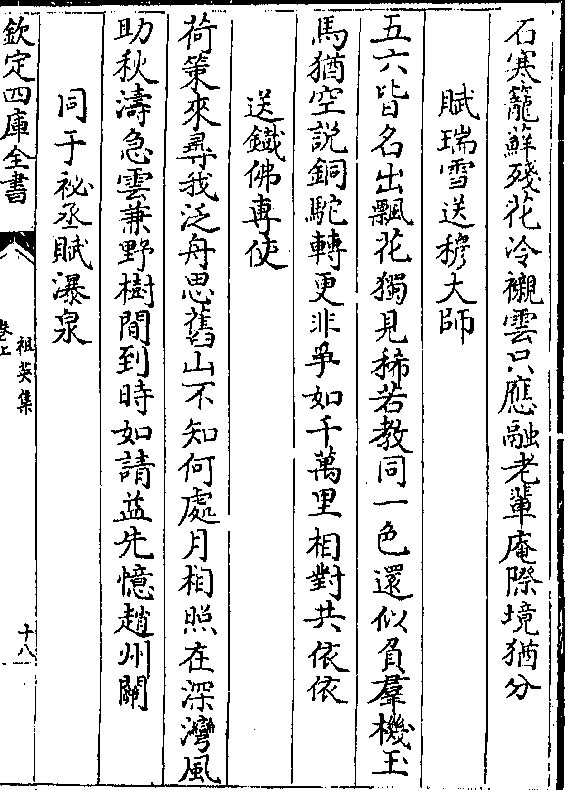 石寒籠蘚殘花冷襯雲只應融老輩庵際境猶分
賦瑞雪送穆大師
五六皆名出飄花獨見稀若教同一色還似負羣機玉
馬猶空説銅駝轉更非爭如千萬里相對共依依
送鐵佛專使
荷策來尋我泛舟思舊山不知何處月相照在深灣風
助秋濤急雲兼野樹閒到時如請益先憶趙州關
同于祕丞賦瀑泉
欽定四庫全書
祖英集
卷上
十八